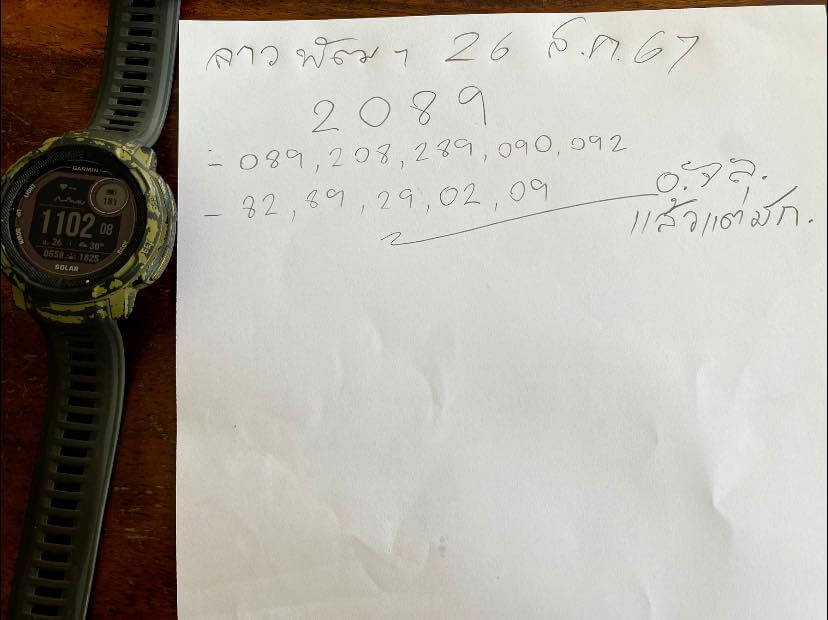 ลาวพัฒนา 26 ส.ค. 67
2089
- 089, 208, 289, 090, 092
- 82, 89, 29, 02, 09
แล้วแต่มัก.
GARMIN
LIGHT
181
1102 08
ม. 26 30°
0558 1825
UP
DOWN
BACK
SOLAR